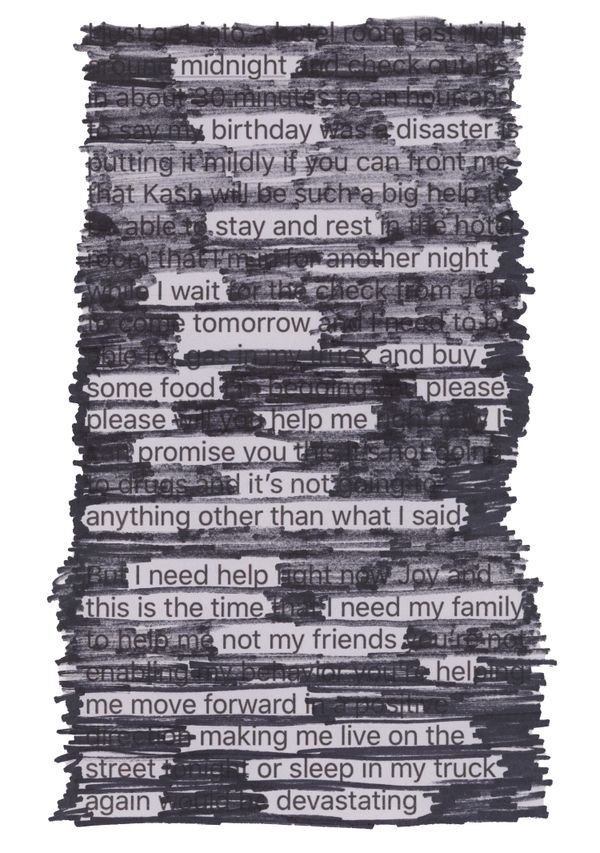 I just got into a hotel room last night
around midnight and check out
in about 30 minutes to an hour and
to say my birthday was a disaster is
putting it mildly if you can front me
that Kash will be such a big help to
be able to stay and rest in the hotel
room that I'm in for another night
while I wait for the check from John
to come tomorrow and I need to be
able for gas in my truck and buy
some food bedding please
please will you help me right now I
can promise you this it's not going
to drugs and it's not going to
anything other than what I said
But I need help right now Joy and
this is the time that I need my family
to help me not my friends you're not
enabling my behavior you're helping
me move forward in a positive
direction making me live on the
street tonight or sleep in my truck
again would be devastating